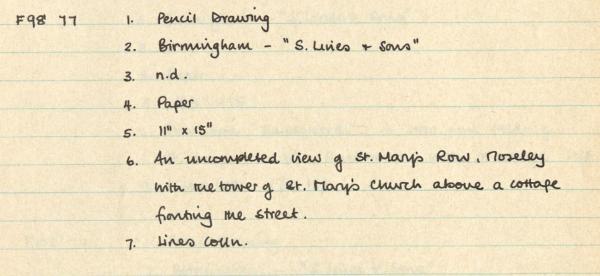 F98 77 1. Pencil Drawing
2. Birmingham - "S. Lines + Sons"
3. n.d.
4. Paper
5. 11" x 15"
6. An uncompleted view of St. Mary's Row, Moseley
with the tower of St. Mary's Church above a cottage
fronting the street.
7. Lines Colln.